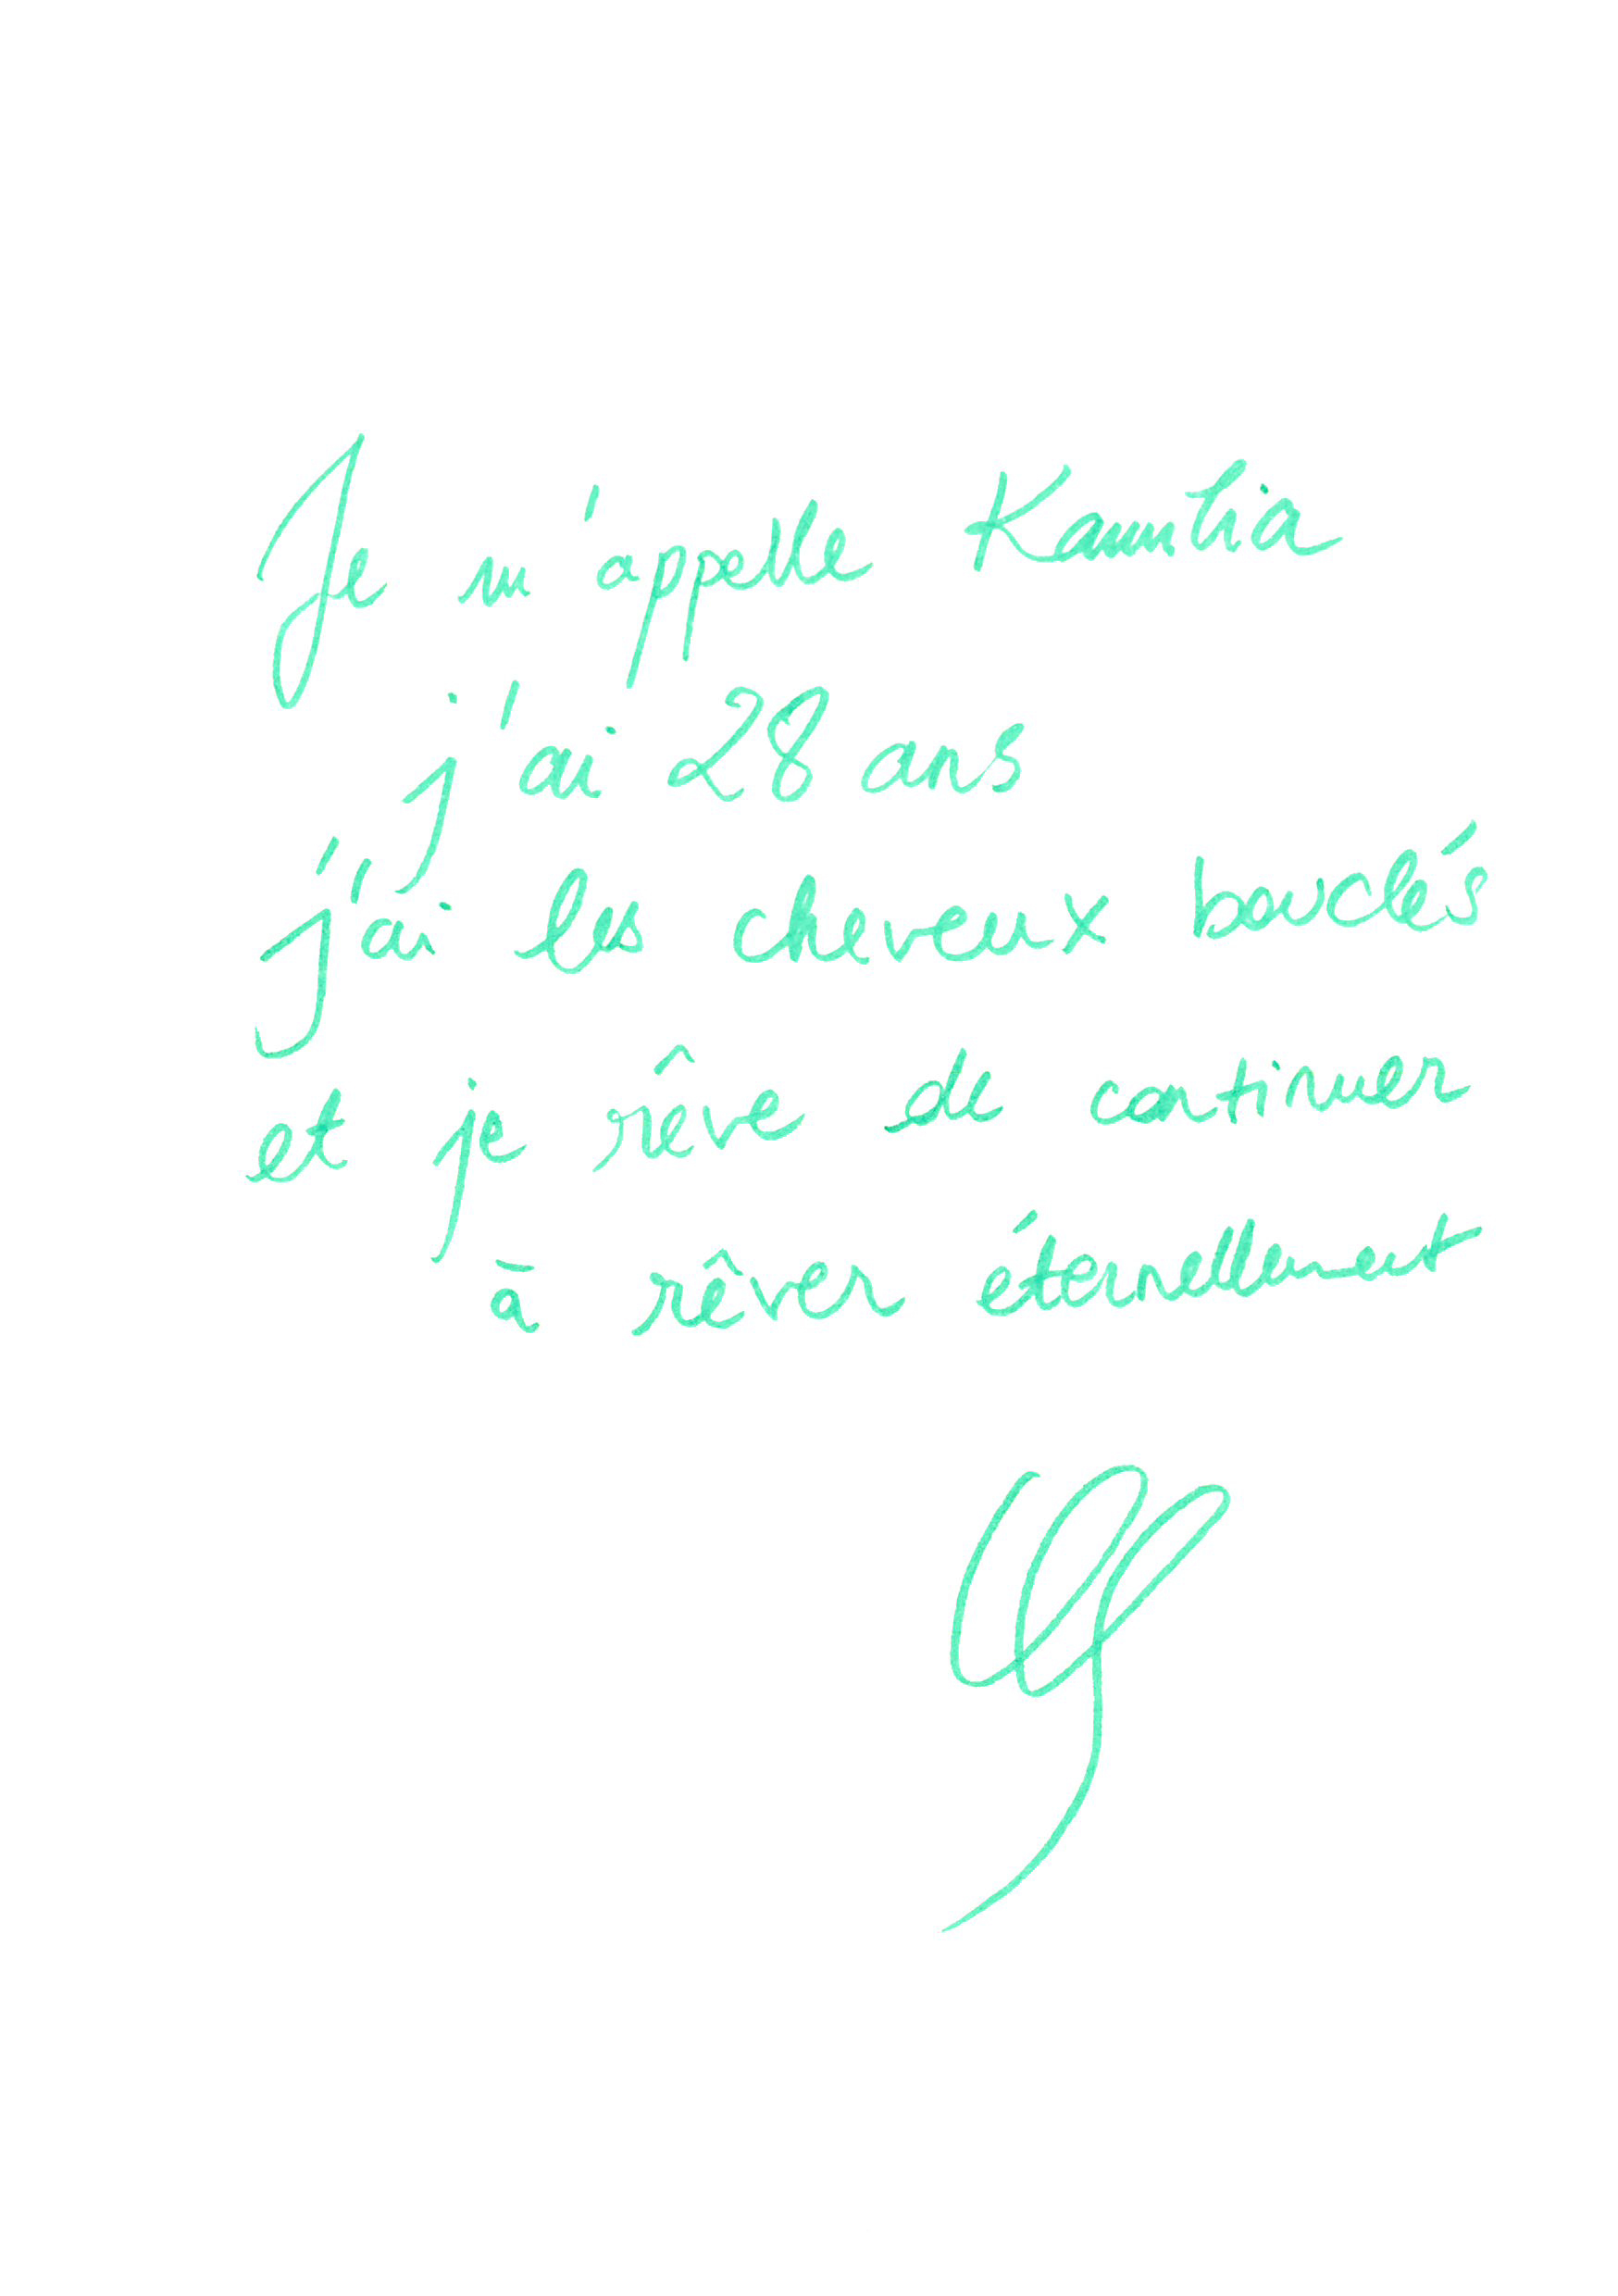 Je m'appelle Kamtia
j'ai 28 ans
j'ai les cheveux bouclés
et je rêve de continuer
à rêver éternellement